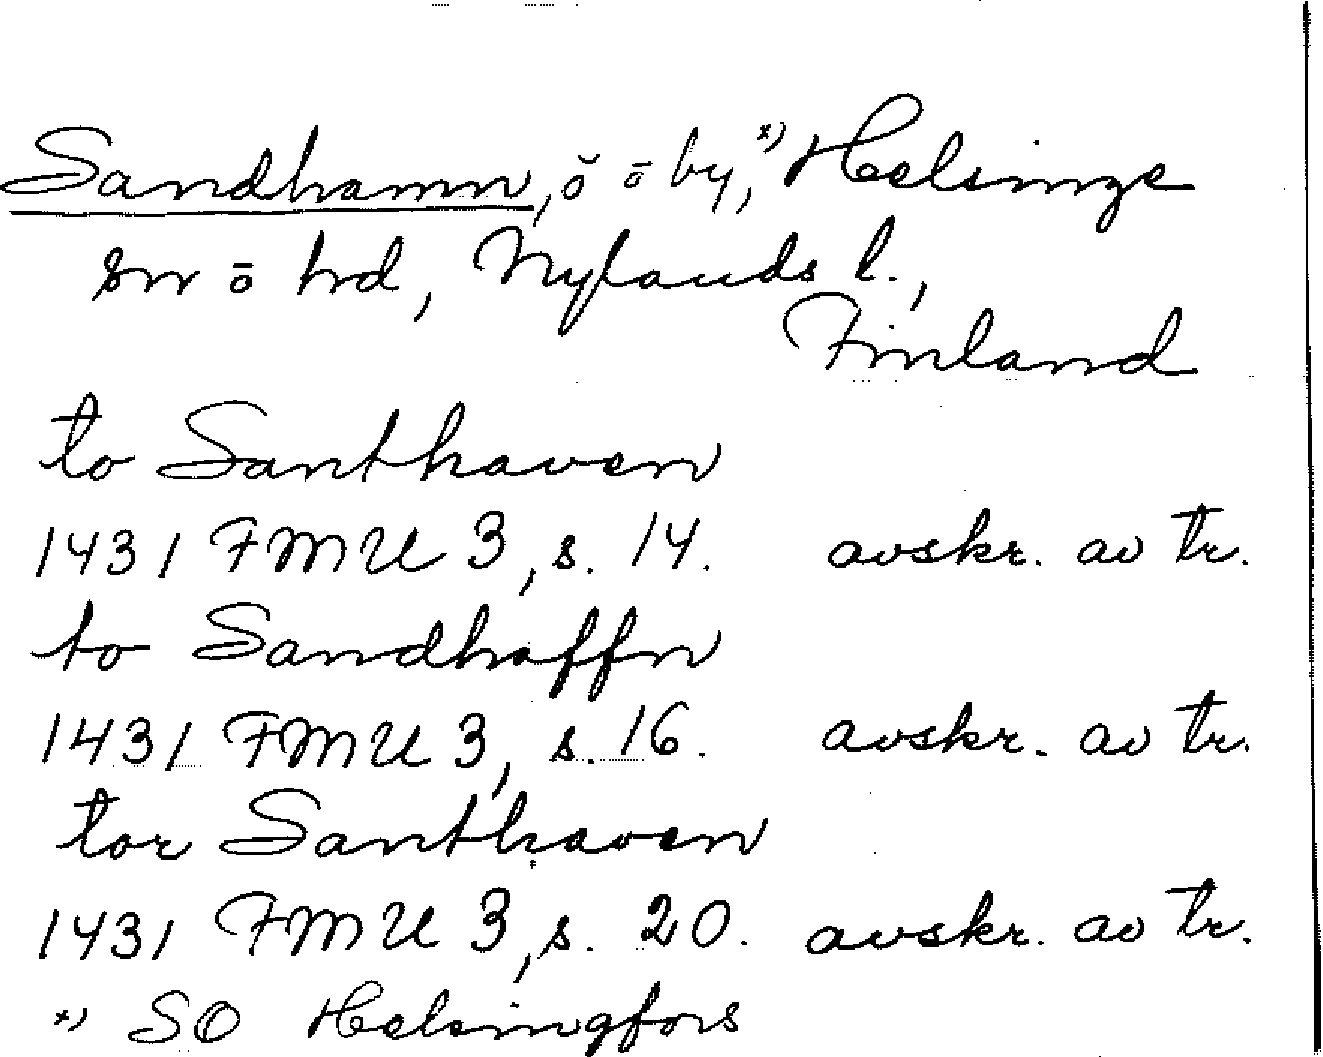 Sandhamn, ö ō by,*) Helsinge
sn ō hd, Nylands l.,
Finland
to Santhaven
1431 FMU 3, s. 14. avskr. av tr.
to Sandhaffn
1431 FMU 3, s. 16. avskr. av tr.
tor Santhaven
1431 FMU 3, s. 20. avskr. av tr.
*) SO Helsingfors